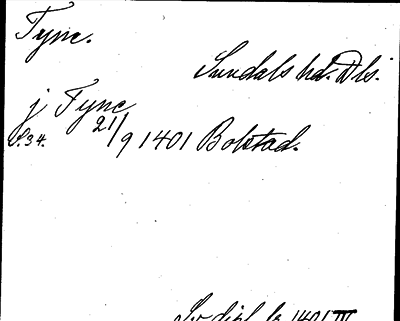 Tyne.
Sundals hd. Dls.
j Tyne
S. 34. 21/9 1401 Bolstad.
Sv. dipl. fr. 1401 III